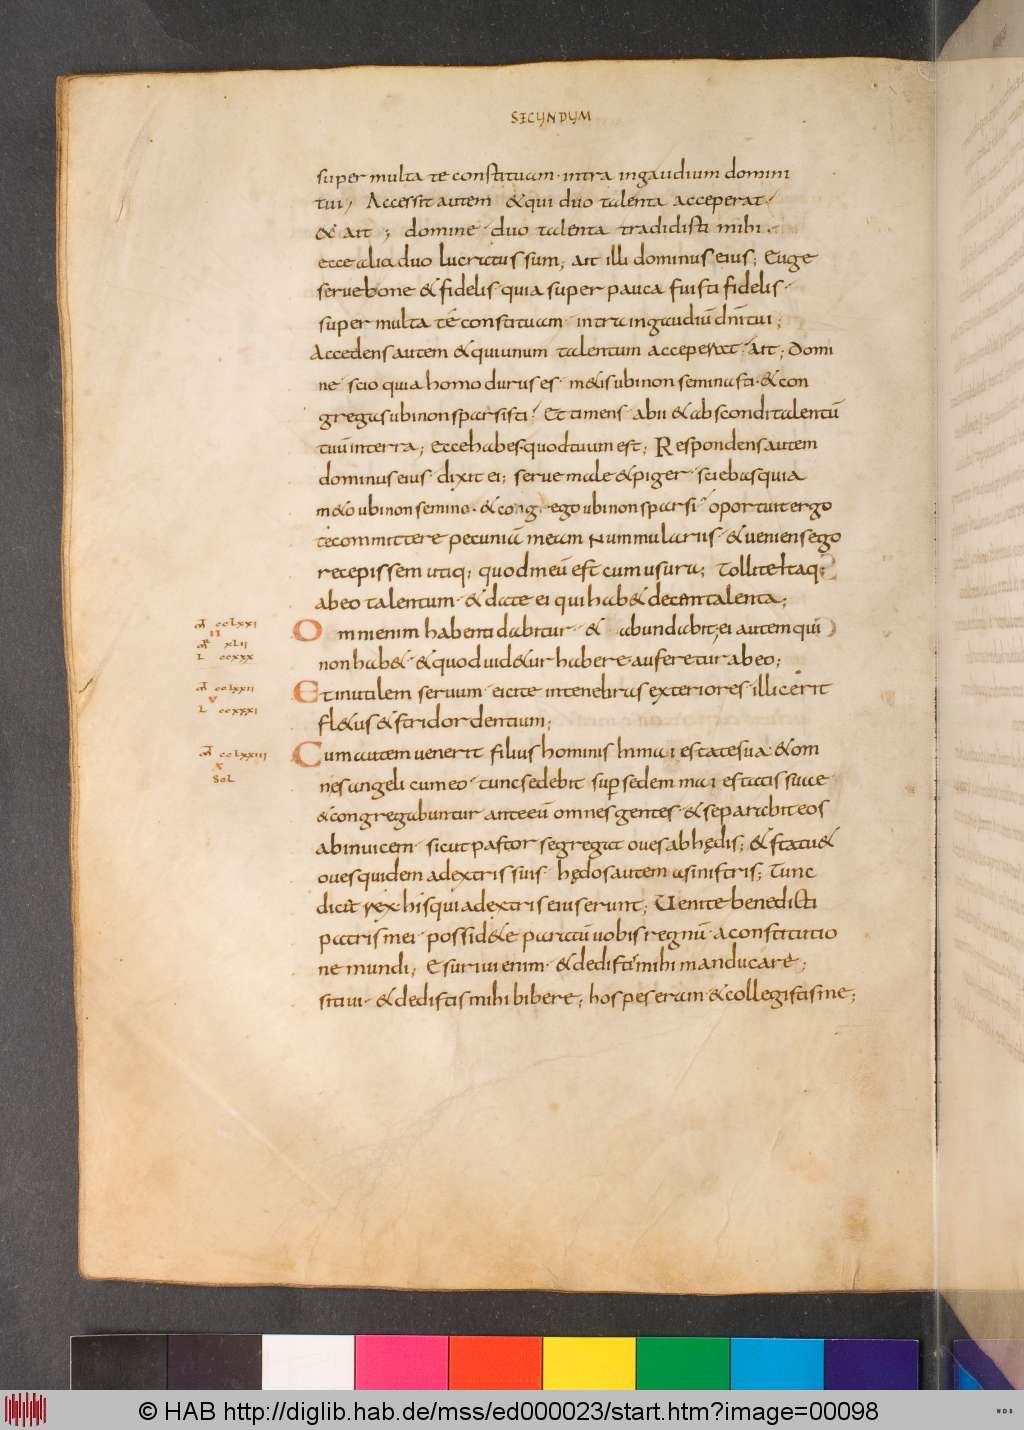 SECUNDUM
super multa te constituam · intra ingaudium domini
tui / Accessit autem & qui duo talenta acceperat /
& ait ; domine · duo talenta tradidisti mihi .
ecce alia duo lucratus sum ; ait illi dominus eius ; Euge
serve bone & fidelis · quia super pauca fuisti fidelis ·
super multa te constituam · intra in gaudiū dn̄i tui ;
Accedens autem & qui unum talentum acceperat · ait ; Domi
ne · scio quia homo durus es · m&is ubi non seminasti · & con
gregas ubi non sparsisti / Et timens · abii & abscondi talentū
tuū in terra ; Ecce habes quod tuum est ; Respondens autem
dominus eius · dixit ei ; serve male & piger · sciebas quia
m&o ubi non semino · & congrego ubi non sparsi / oportuit ergo
te committere pecuniā meam nummulariis · & veniens ego
recepissem utiq; quod meū est cum usura ; Tollite itaq;
abeo talentum · & date ei qui hab& decem talenta ;
Omni enim habenti dabitur · & abundabit ; ei autem qui
non hab& · & quod vid&ur habere auferetur ab eo ;
Et inutilem servum · eicite in tenebras exteriores · illic erit
fl&us & stridor dentium ;
Cum autem venerit filius hominis In maiestate sua · & om
nes angeli cum eo · tunc sedebit sup̄ sedem maiestatis suae
& congregabuntur ante eū omnes gentes · & separabit eos
ab invicem · sicut pastor segregat oves ab hędis ; & statu&
oves quidem a dextris suis · hędos autem a sinistris ; Tunc
dic& rex his qui a dextris eius erunt ; Venite benedicti
patris mei · possid&e paratū vobis regnū · a constitutio
ne mundi ; Esurivi enim · & dedistis mihi manducare ;
sitivi · & dedistis mihi bibere ; hospes eram & collegistis me ;
m̄ cclxxi
II
m̄r xlii
L ccxxx
m̄ cclxxii
V
L ccxxxi
m̄ cclxxiii
X
Sol
© HAB http://diglib.hab.de/mss/ed000023/start.htm?image=00098